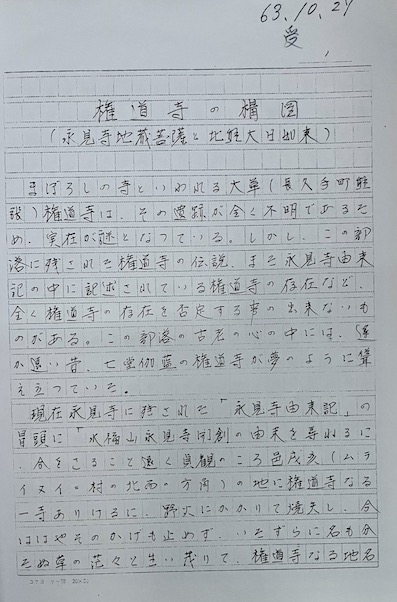 63.10.27
受
権道寺の構図
(永見寺地蔵菩薩と北熊大日如来)
まぼろしの寺といわれる大草(長久手町熊
張)権道寺は、その遺跡が全く不明であるた
め、実在が謎となっている。しかし、この部
落に残された権道寺の伝説、また永見寺由来
記の中に記述されている権道寺の存在など、
全く権道寺の存在を否定する事の出来ないも
のがある。この部落の古老の心の中には、遥
か遠い昔、七堂伽藍の権道寺が夢のように聳
え立っていた。
現在永見寺に残された「永見寺由来記」の
冒頭に「水福山永見寺開創の由来を尋ねるに
、今をさること遠く貞観のころ邑戌亥(ムラ
イヌイ=村の北西の方角)の地に権道寺なる
一寺ありけるに、野火にかかりて焼失し、今
ははやそのかげも止めず、いたずらに名も分
ぬ草の茫々と生い茂りて、権道寺なる地名